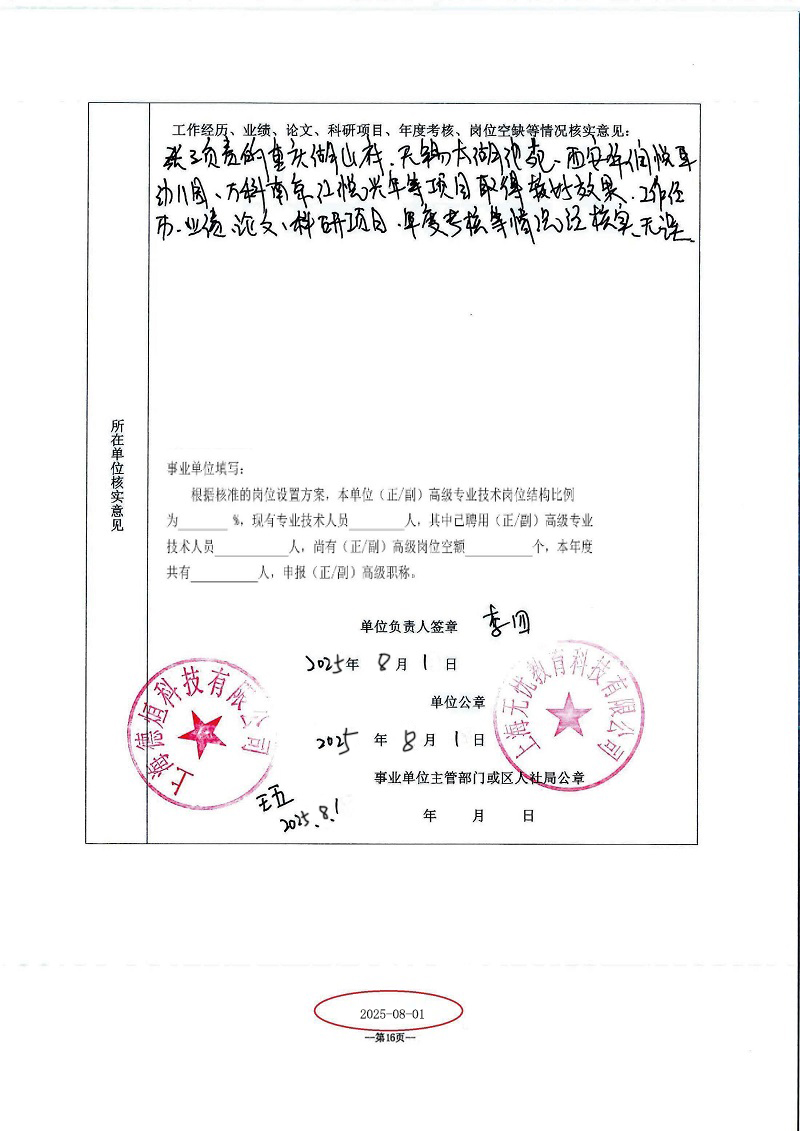 工作经历、业绩、论文、科研项目、年度考核、岗位空缺等情况核实意见：
张三负责的重庆湖山村、无锡太湖 西安华 悦
幼儿园、万科南京江悦兴年等项目取得较好效果、工作任
历、业绩、论文、科研项目、年度考核等情况经核实、无误。
所在单位核实意见
事业单位填写：
根据核准的岗位设置方案，本单位（正/副）高级专业技术岗位结构比例
为______ %，现有专业技术人员______人，其中已聘用（正/副）高级专业
技术人员______人，尚有（正/副）高级岗位空额______个，本年度
共有______人，申报（正/副）高级职称。
单位负责人签章 李四
2025年 8月1日
单位公章
2025 年 8月1日
事业单位主管部门或区人社局公章
年 月 日
上海德烜科技有限公司
上海无忧教育科技有限公司
王五
2025.8.1
2025-08-01
—第16页—